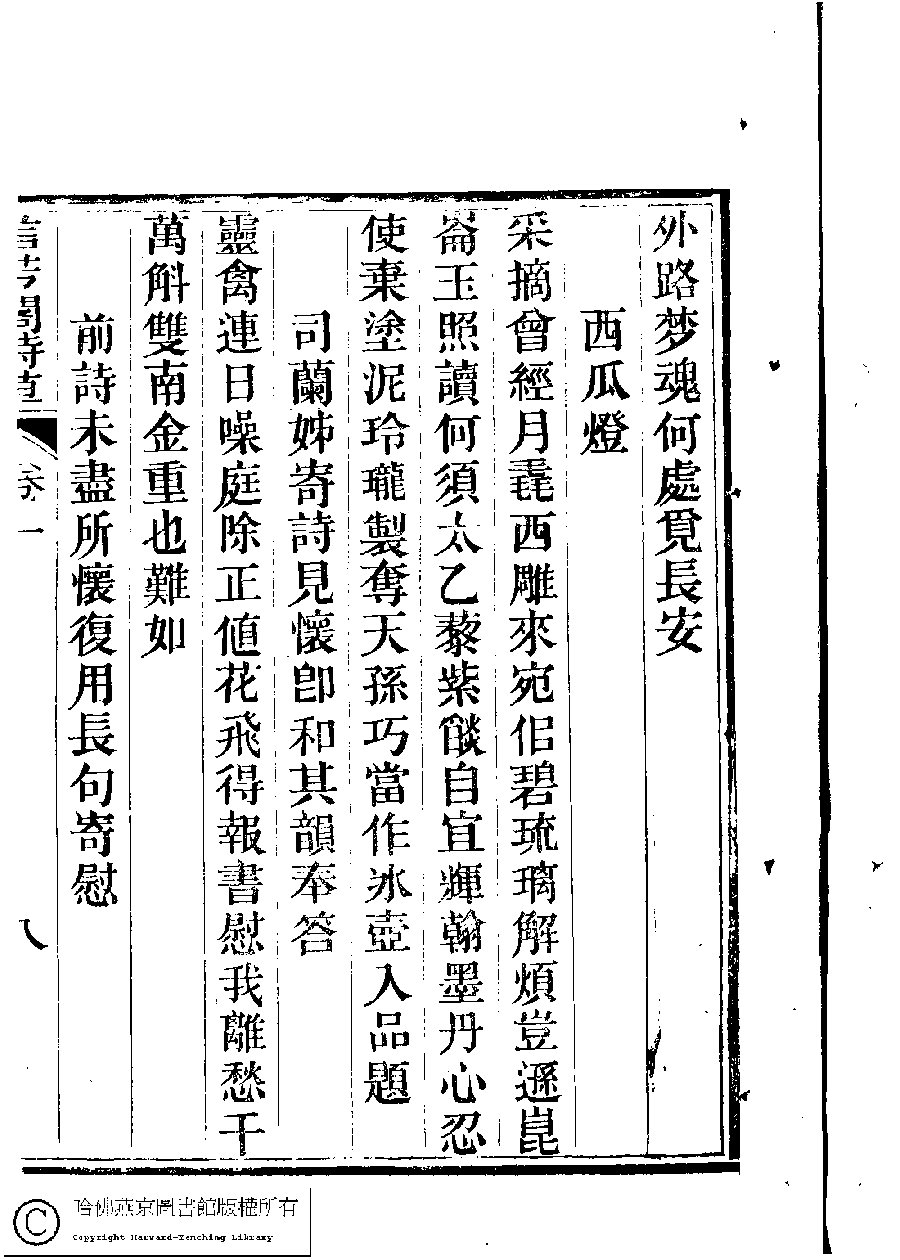 外路梦魂何處覓長安
西瓜燈
采摘曾經月毳西雕來宛侣碧琉璃解煩豈遜崑
崙玉照讀何須太乙藜紫燄自宜輝翰墨丹心忍
使棄塗泥玲瓏製奪天孫巧當作氷壺入品題
司蘭姊寄詩見懷卽和其韻奉答
靈禽連日噪庭除正値花飛得報書慰我離愁千
萬斛雙南金重也難如
前詩未盡所懷復用長句寄慰
閣詩草
卷一
八
哈佛燕京圖書館版權所有
Copyright Harvard-Yenching Library